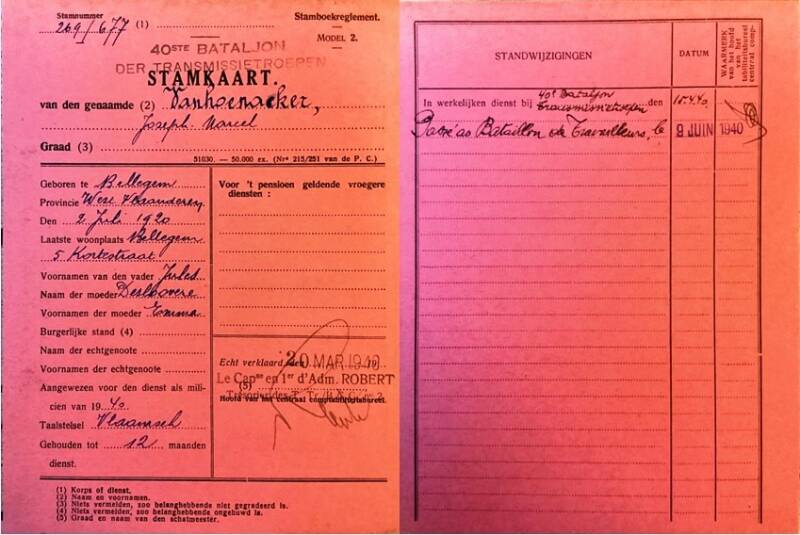 Stamnummer
269/677 (1)
Stamboekreglement.
MODEL 2.
40STE BATALJON
DER TRANSMISSIETROEPEN
STAMKAART.
van den genaamde (2) Vanhoenacker,
Joseph Marcel
Graad (3)
51030. — 50.000 ex. (Nrs 215/251 van de P. C.)
Geboren te Bellegem
Provincie West Vlaanderen
Den 2 Juli 1920
Laatste woonplaats Bellegem
5 Kortestraat
Voornamen van den vader Jules
Naam der moeder Desloovere
Voornamen der moeder Emma
Burgerlijke stand (4)
Naam der echtgenoote
Voornamen der echtgenoote
Aangewezen voor den dienst als mili-
cien van 1940
Taalstelsel Vlaamsch
Gehouden tot 12 maanden
dienst.
Voor 't pensioen geldende vroegere
diensten :
Echt verklaard, den 20 MAR 1940
Le Capne en 1er d'Adm. ROBERT
(5)
Hoofd van het centraal comptabiliteitsbureel.
(1) Korps of dienst.
(2) Naam en voornamen.
(3) Niets vermelden, zoo belanghebbende niet gegradeerd is.
(4) Niets vermelden, zoo belanghebbende ongehuwd is.
(5) Graad en naam van den schatmeester.
STANDWIJZIGINGEN
DATUM
WAARMERK
van het hoofd
van het
centraal comp-
tabiliteitsbureel
In werkelijken dienst bij 40e Bataljon
Transmissietroepen den 15.4.40
Passé au Bataillon de Travailleurs, le 9 JUIN 1940